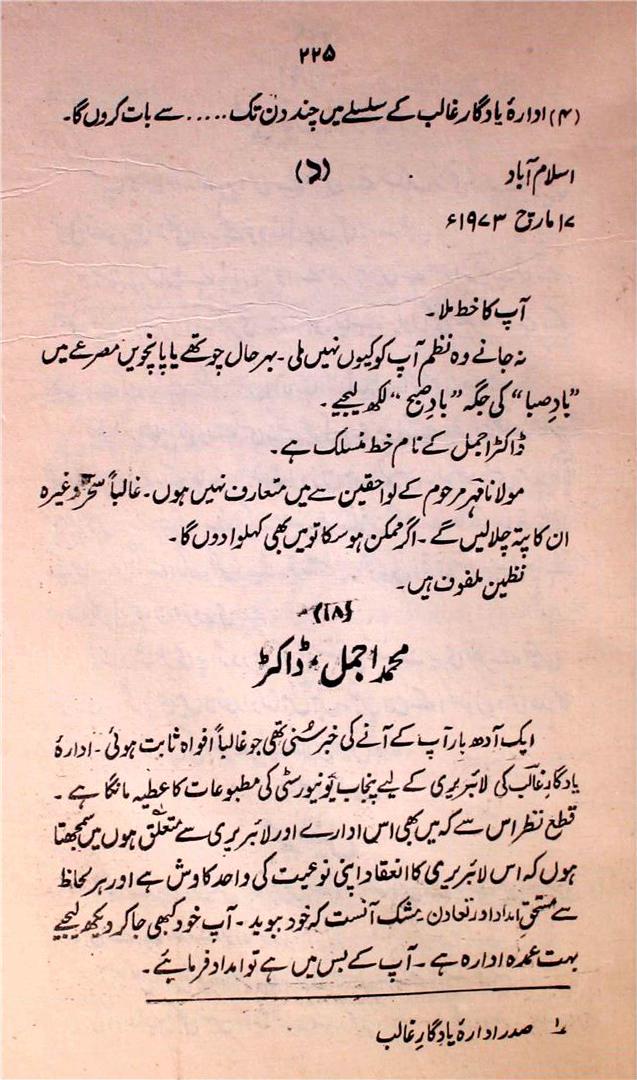 ۲۲۵
(۴) ادارۂ یادگار غالب کے سلسلے میں چند دن تک ..... سے بات کروں گا۔
اسلام آباد (۶)
۱۷ مارچ ۱۹۷۳ء
آپ کا خط ملا۔
نہ جانے وہ نظم آپ کو کیوں نہیں ملی۔ بہر حال چوتھے یا پانچویں مصرعے میں
”بادِ صبا“ کی جگہ ”بادِ صبح“ لکھ لیجیے۔
ڈاکٹر اجمل کے نام خط منسلک ہے۔
مولانا مہر مرحوم کے لواحقین سے میں متعارف نہیں ہوں۔ غالباً سحر وغیرہ
ان کا پتہ چلا لیں گے۔ اگر ممکن ہو سکا تو میں بھی کہلوا دوں گا۔
نظمیں ملفوف ہیں۔
(۱۸)
محمد اجمل، ڈاکٹر
ایک آدھ بار آپ کے آنے کی خبر سُنی تھی جو غالباً افواہ ثابت ہوئی۔ ادارۂ
یادگارِ غالب کی لائبریری کے لیے پنجاب یونیورسٹی کی مطبوعات کا عطیہ مانگا ہے۔
قطع نظر اس سے کہ میں بھی اس ادارے اور لائبریری سے متعلق ہوں میں سمجھتا
ہوں کہ اس لائبریری کا انعقاد اپنی نوعیت کی واحد کاوش ہے اور ہر لحاظ
سے مستحقِ امداد اور تعاون۔ مشک آنست کہ خود ببوید۔ آپ خود کبھی جا کر دیکھ لیجیے
بہت عمدہ ادارہ ہے۔ آپ کے بس میں ہے تو امداد فرمائیے۔
۱ صدر ادارۂ یادگارِ غالب